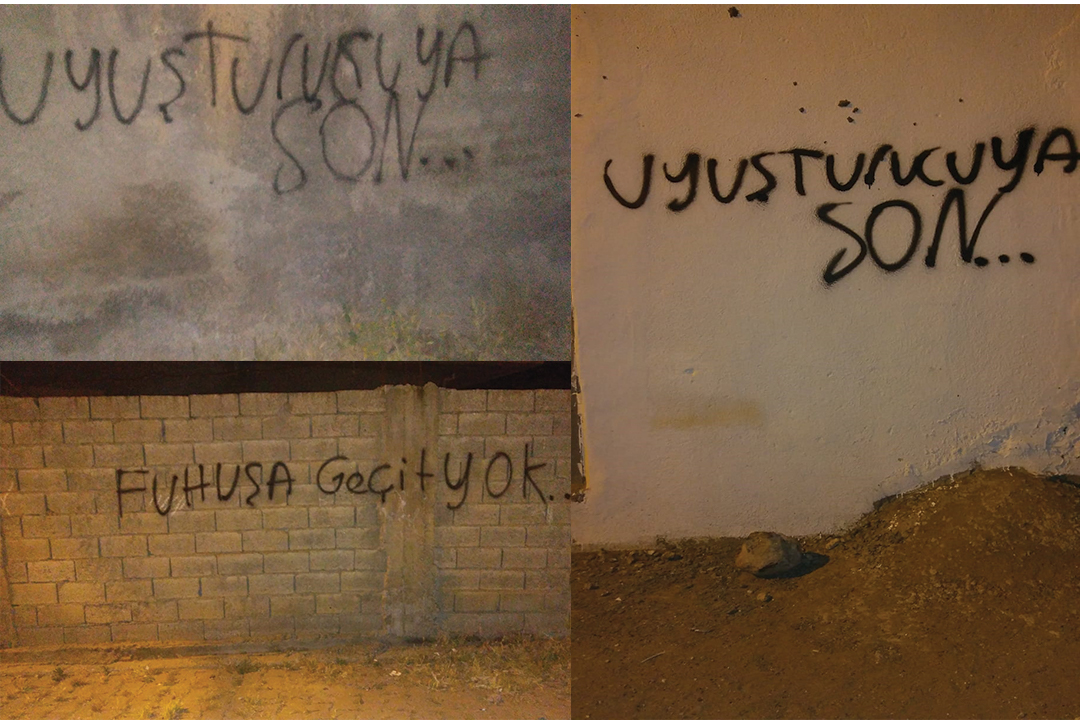 UYUŞTURUCUYA
SON...
FUHUŞA GeçitYOK...
UYUŞTURUCUYA
SON...